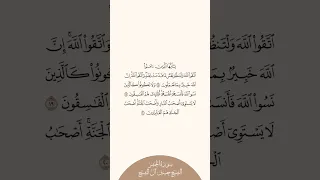 يَٰٓأَيُّهَا ٱلَّذِينَ ءَامَنُوا۟
ٱتَّقُوا۟ ٱللَّهَ وَلْتَنظُرْ نَفْسٌ مَّا قَدَّمَتْ لِغَدٍ ۖ وَٱتَّقُوا۟ ٱللَّهَ ۚ إِنَّ
ٱللَّهَ خَبِيرٌۢ بِمَا تَعْمَلُونَ ١٨ وَلَا تَكُونُوا۟ كَٱلَّذِينَ
نَسُوا۟ ٱللَّهَ فَأَنسَىٰهُمْ أَنفُسَهُمْ ۚ أُو۟لَٰٓئِكَ هُمُ ٱلْفَٰسِقُونَ ١٩
لَا يَسْتَوِىٓ أَصْحَٰبُ ٱلنَّارِ وَأَصْحَٰبُ ٱلْجَنَّةِ ۚ أَصْحَٰبُ
ٱلْجَنَّةِ هُمُ ٱلْفَآئِزُونَ ٢٠
سورة الحشر